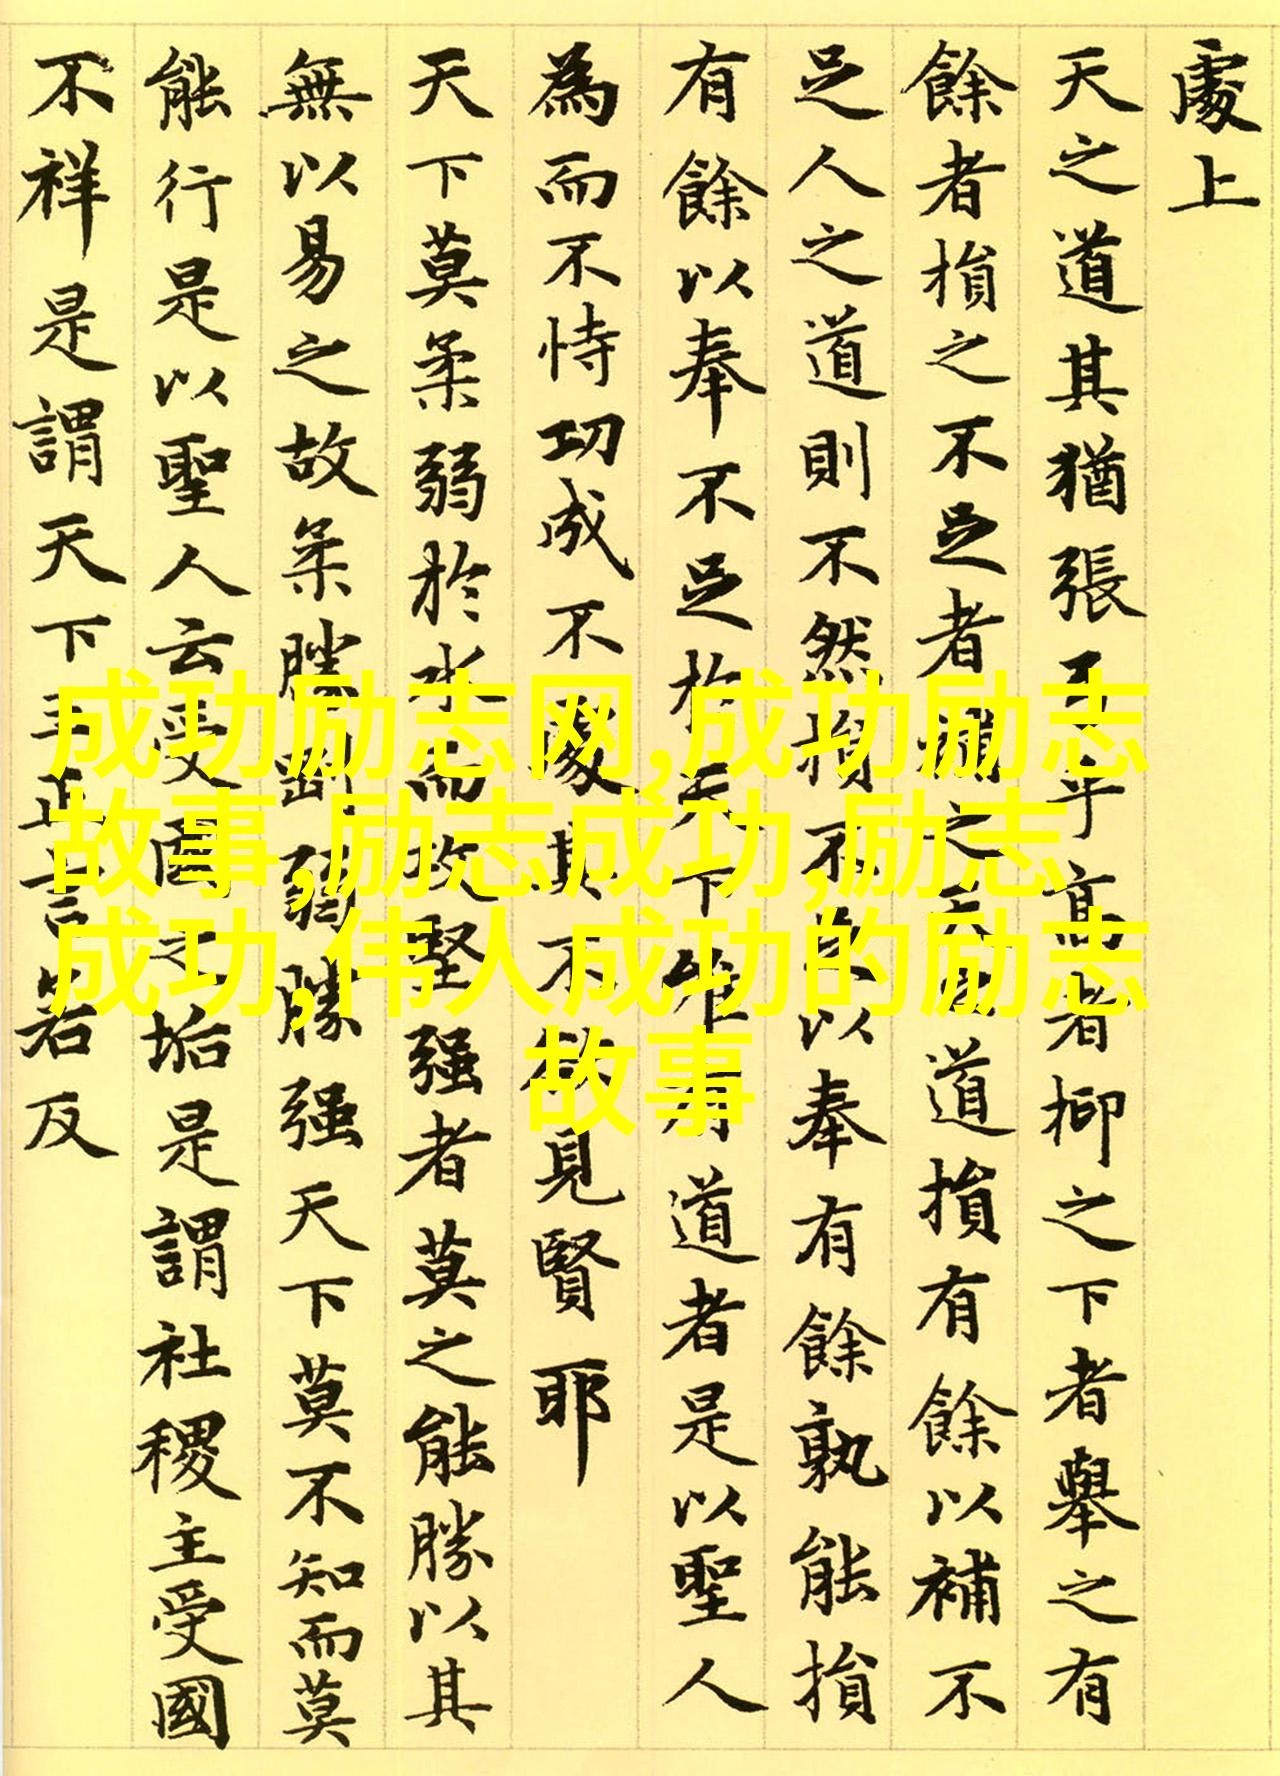 處上
天之道其猶張弓乎高者抑之下者舉之有
餘者損之不足者補之天之道損有餘以補不
足人之道則不然損不足以奉有餘孰能損
有餘以奉不足於天下唯有道者是以聖人
為而不恃功成不處其不欲見賢耶
天下莫柔弱於水而攻堅强者莫之能勝以其
無以易之故柔勝剛弱勝强天下莫不知而莫
能行是以聖人云受國之垢是謂社稷主受國
不祥是謂天下王正言若反
成功励志网,成功励志
故事,励志成功,励志
成功,伟人成功的励志
故事